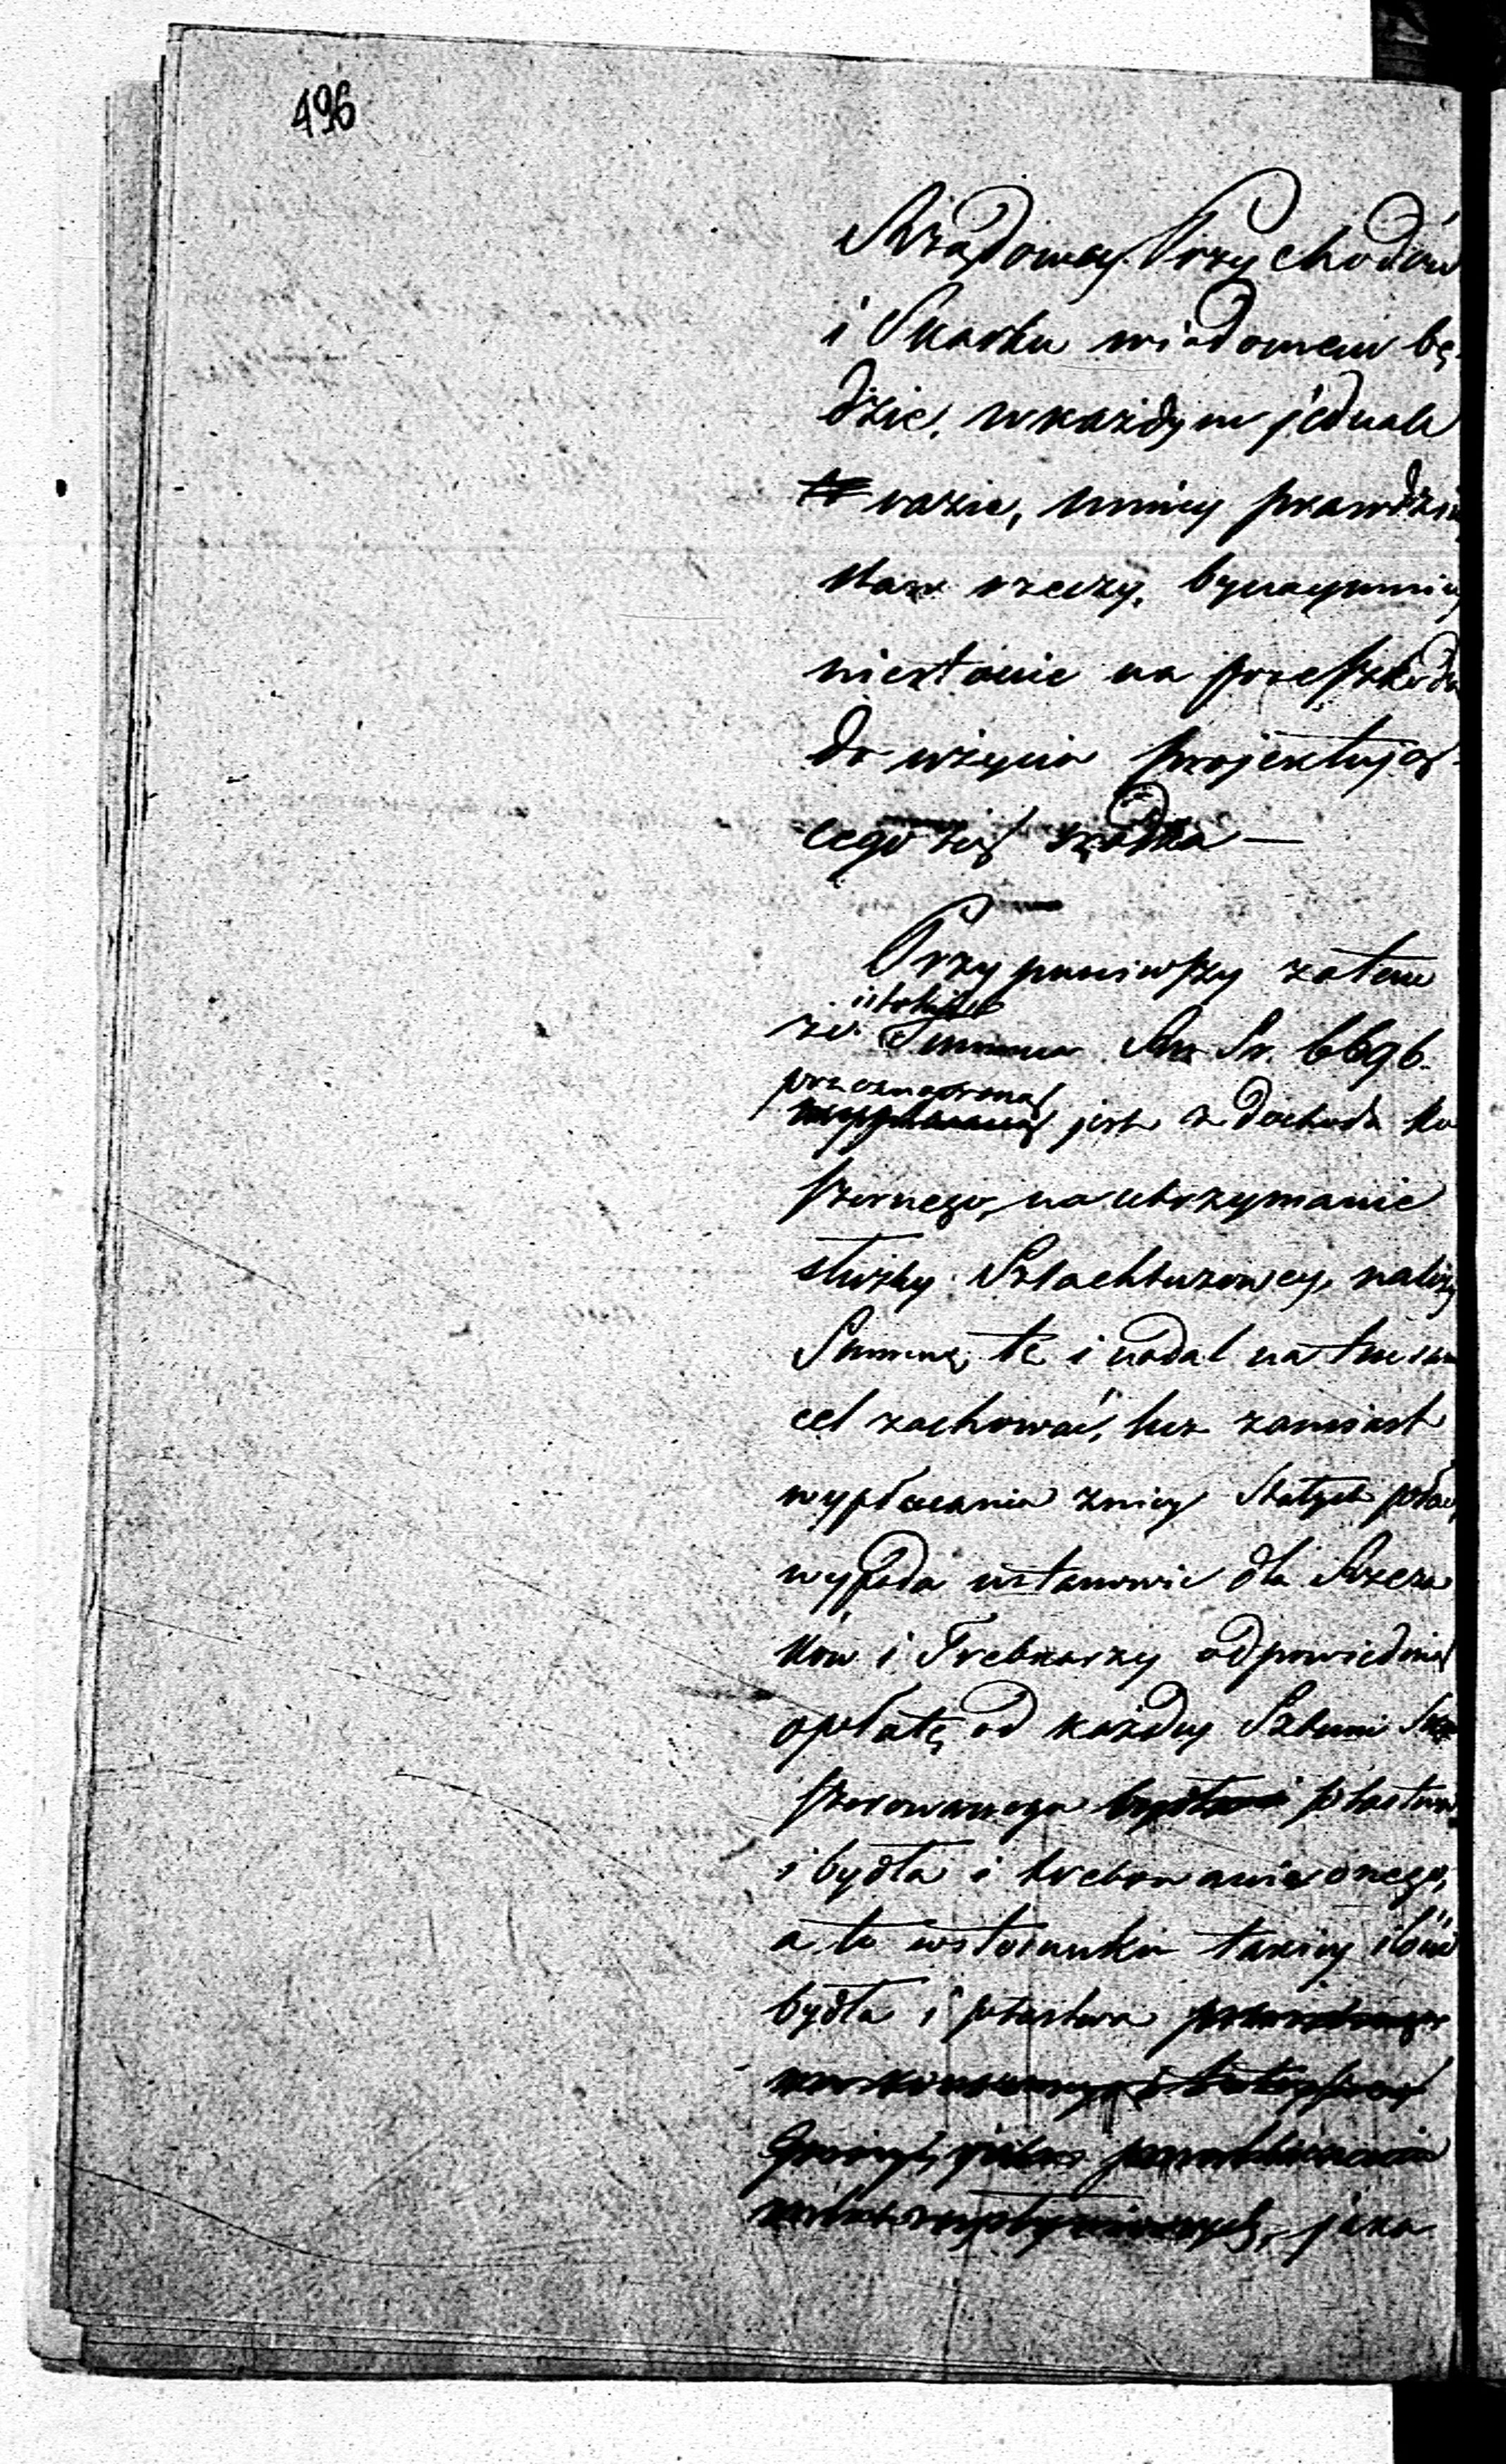 496
Rządowey Przychodów
i Skarbu wiadomem bę-
dzie, w każdym jednak
razie, inniey prawdzi
stan rzeczy, bynaymniey
niestanie na przeszkodz
do użycia projektują-
cego się środka —
Przypuściwszy zatem
że istotnie Summa Rsr Sr. 6696.
przeznaczoną jest z dochodu ko
szernego, na utrzymanie
służby Szlachtuzowey, należy
Summę tę i nadal na ten sam
cel zachować, lecz zamiast
wypłacania zniey stałych płac
wypada ustanowić dla Rzeza
ków i Trebkarzy odpowiednią
opłatę od każdey Sztuki ko
szerowanego ptastwa
i bydła i trebowanie onego,
a to w stosunku takiey ilości
bydła i ptastwa
jaka